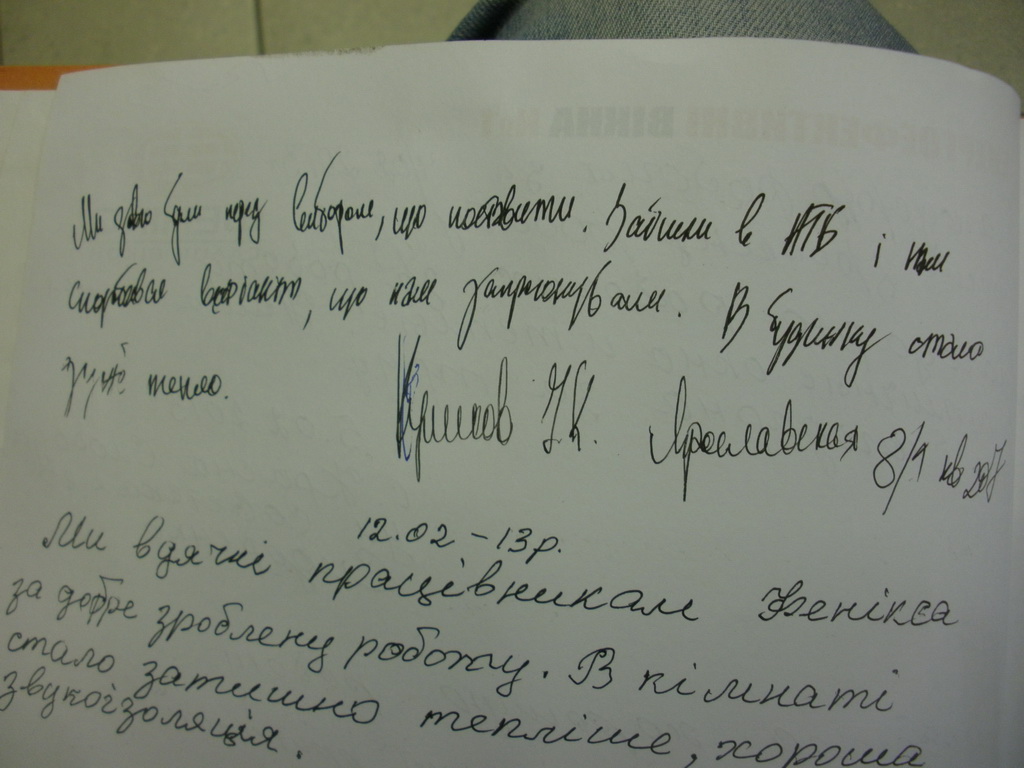 Ми давно були перед вибором, що поставити. Зайшли в АТБ і нам
сподобався варіант, що нам запропонували. В будинку стало
дуже тепло.
І.К. Ярославская 8/1 кв 207
12.02-13р.
Ми вдячні працівникам Фенікса
за добре зроблену роботу. В кімнаті
стало затишно тепліше, хороша
звукоізоляція.